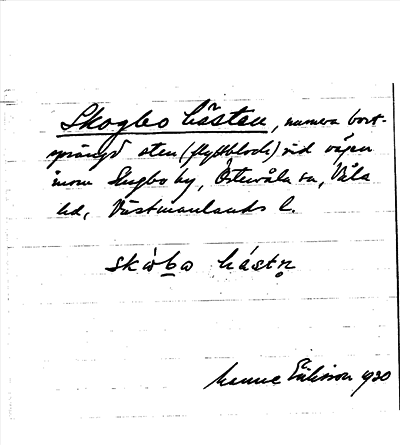 Skogbo hästen, numera bort-
sprängd sten (flyttblock) vid vägen
inom Ingbo by, Östervåla sn, Våla
hd, Västmanlands l.
skò̀bo hástn̥
Manne Eriksson 1930